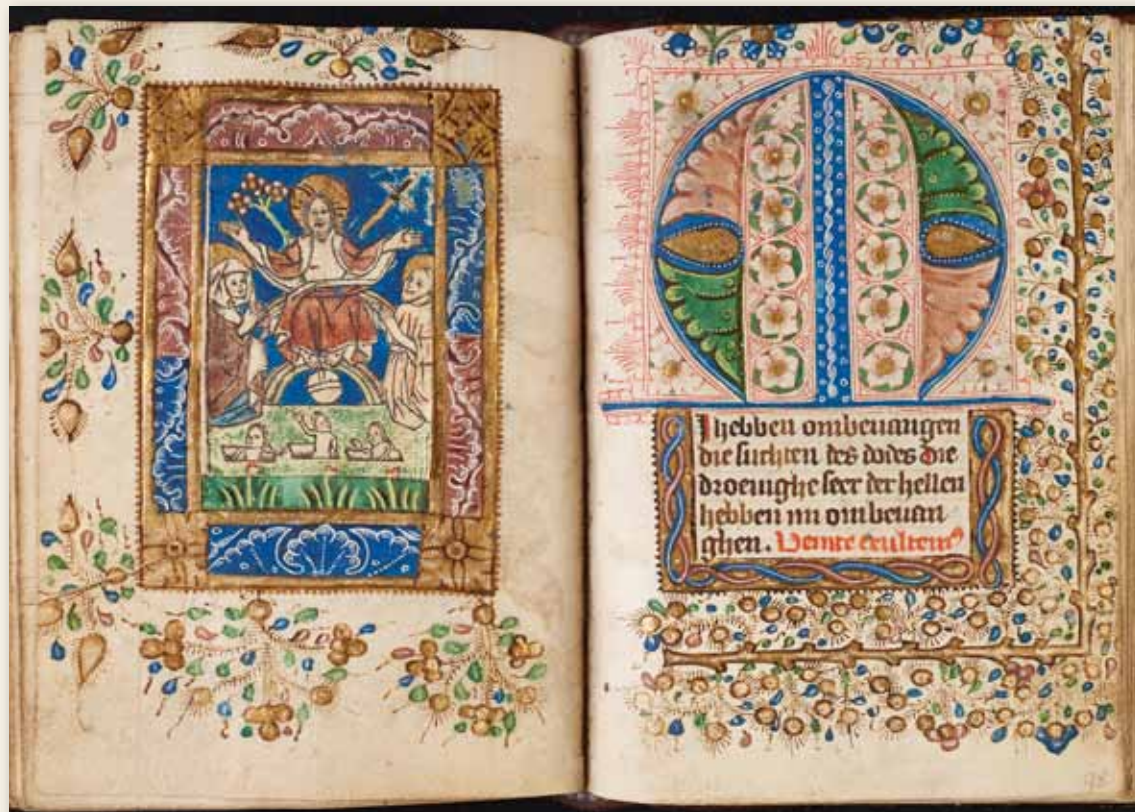 M
I hebben ombeuangen
die suchten des dodes die
droeuighe seer der hellen
hebben mi ombeuan
ghen. Venite exultem⁹
98